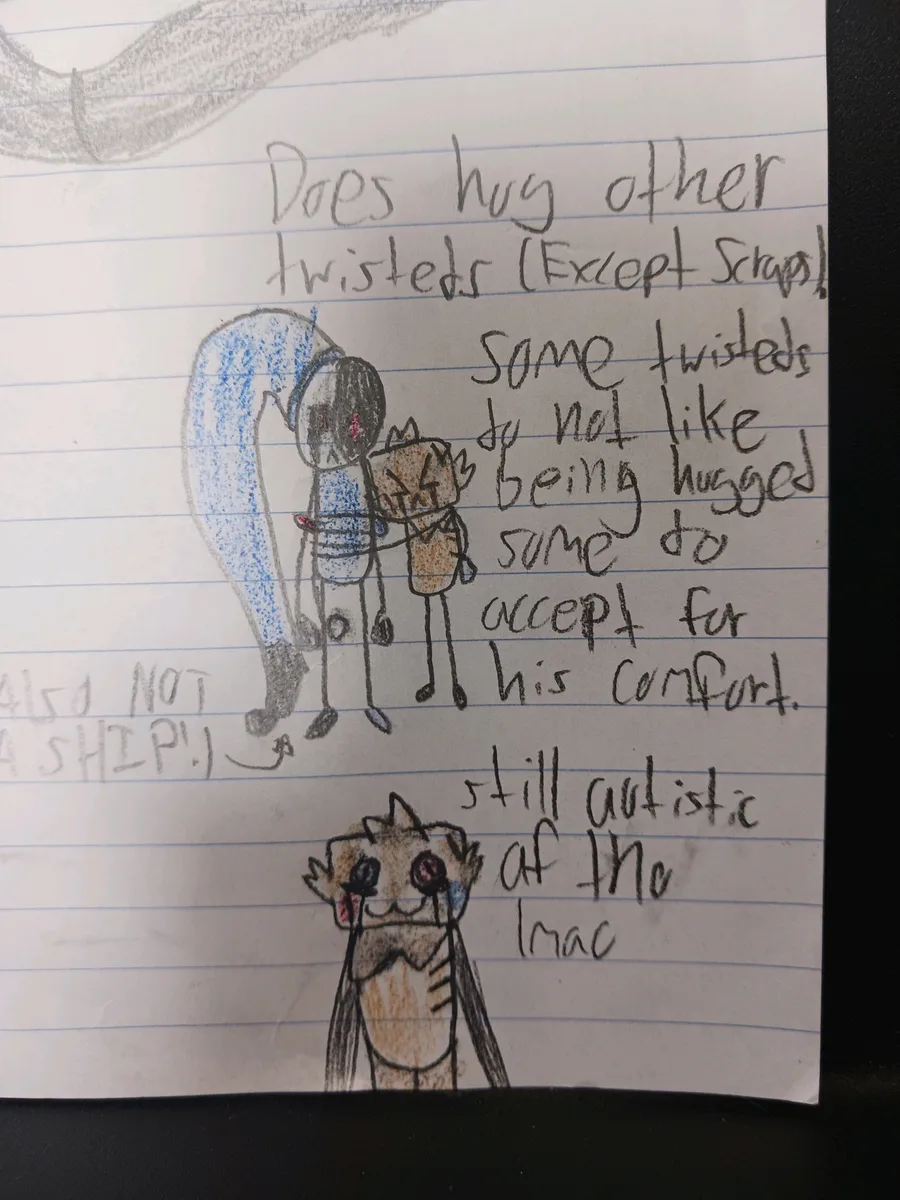 Does hug other
twisteds (Except Scraps)!
Some twisteds
do not like
being hugged
some do
accept for
his comfort.
Also NOT
A SHIP!)
still autistic
af tho
lmao